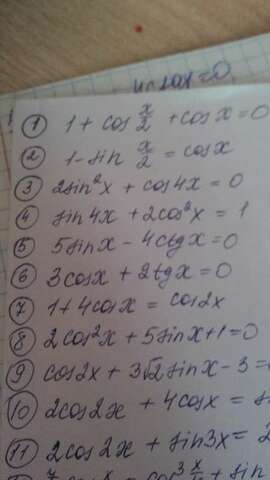 cosx=0
1 1 + cos x/2 + cosx=0
2 1-sin x/2 = cosx
3 2sin²x + cos4x = 0
4 sin4x + 2cos²x = 1
5 5sinx - 4ctgx=0
6 3cosx + 2tgx=0
7 1+4cosx = cos2x
8 2cos²x + 5sinx+1=0
9 cos2x + 3√2sinx-3=
10 2cos2x + 4cosx =
11 2cos2x + sin3x= 2